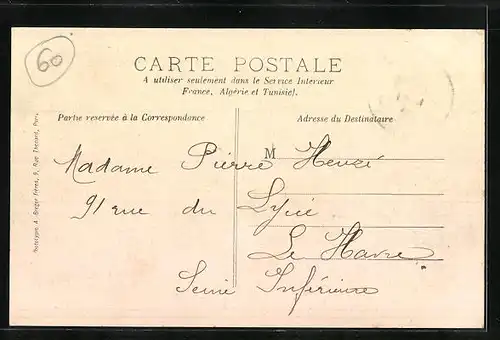 60
CARTE POSTALE
A utiliser seulement dans le Service Interieur
France, Algérie et Tunisie).
Partie reservée à la Correspondance
Adresse du Destinataire
M
Madame Pierre
91 rue du Lycée
Le Havre
Seine Inférieure
Phototypie A. Breger frères, 9, Rue Thénard, Paris.